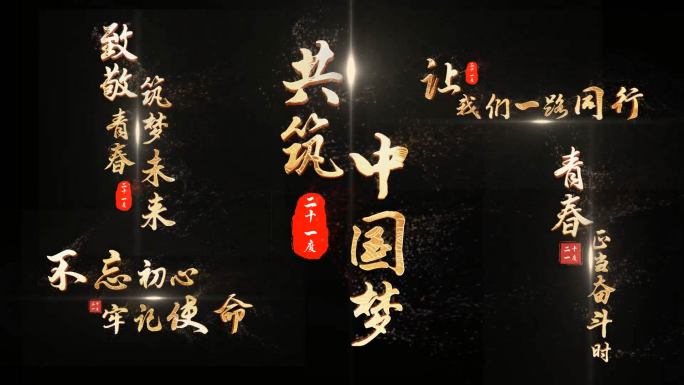 致敬青春
筑梦未来
二十一度
不忘初心
牢记使命
二十一度
共筑
中国梦
二十一度
让
我们一路同行
二十一度
青春
正当奋斗时
二十一度